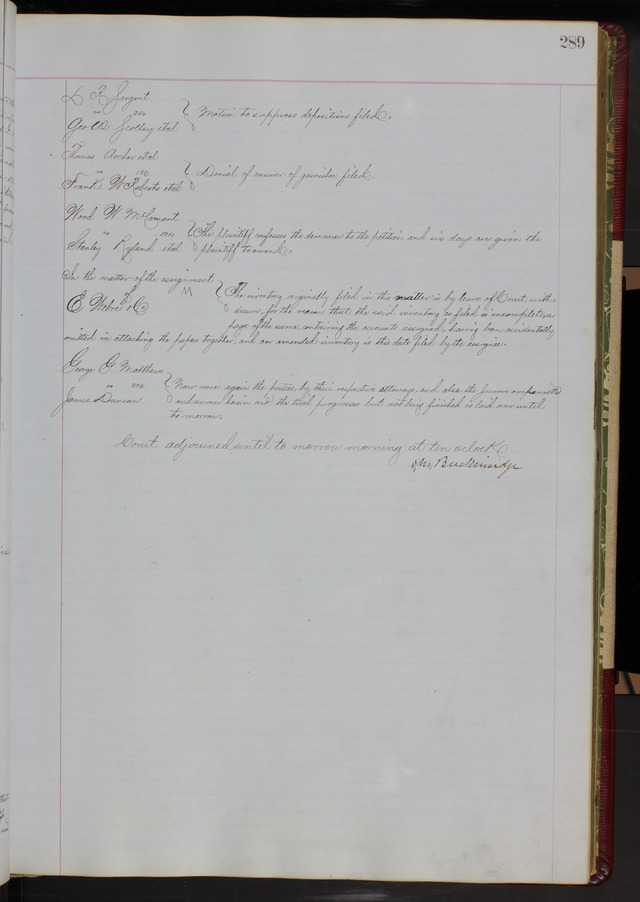 289
L R Sargent
vs
Geo W. Scollay et al
Motion to suppress depositions filed.
Thomas Archer et al
vs
Frank W Roberts et al
Denial of answer of garnishee filed.
Wood W McCamant
vs
Stanley Ryland et al
The plaintiff confesses the demurrer to the petition and six days are given the
plaintiff to amend.
In the matter of the assignment
of
E Webre & Co
The inventory originally filed in this matter is by leave of Court with-
drawn, for the reason that the said inventory as filed is incomplete, a
page of the same, containing the accounts assigned, having been accidentally
omitted in attaching the papers together, and an amended inventory is this date filed by the assignee.
George G Matthews
vs
James Duncan
Now come again the parties, by their respective attorneys, and also the jurors empannelled
and sworn herein and the trial progresses but not being finished is laid over until
to morrow.
Court adjourned until to morrow morning at ten oclock
Breckinridge